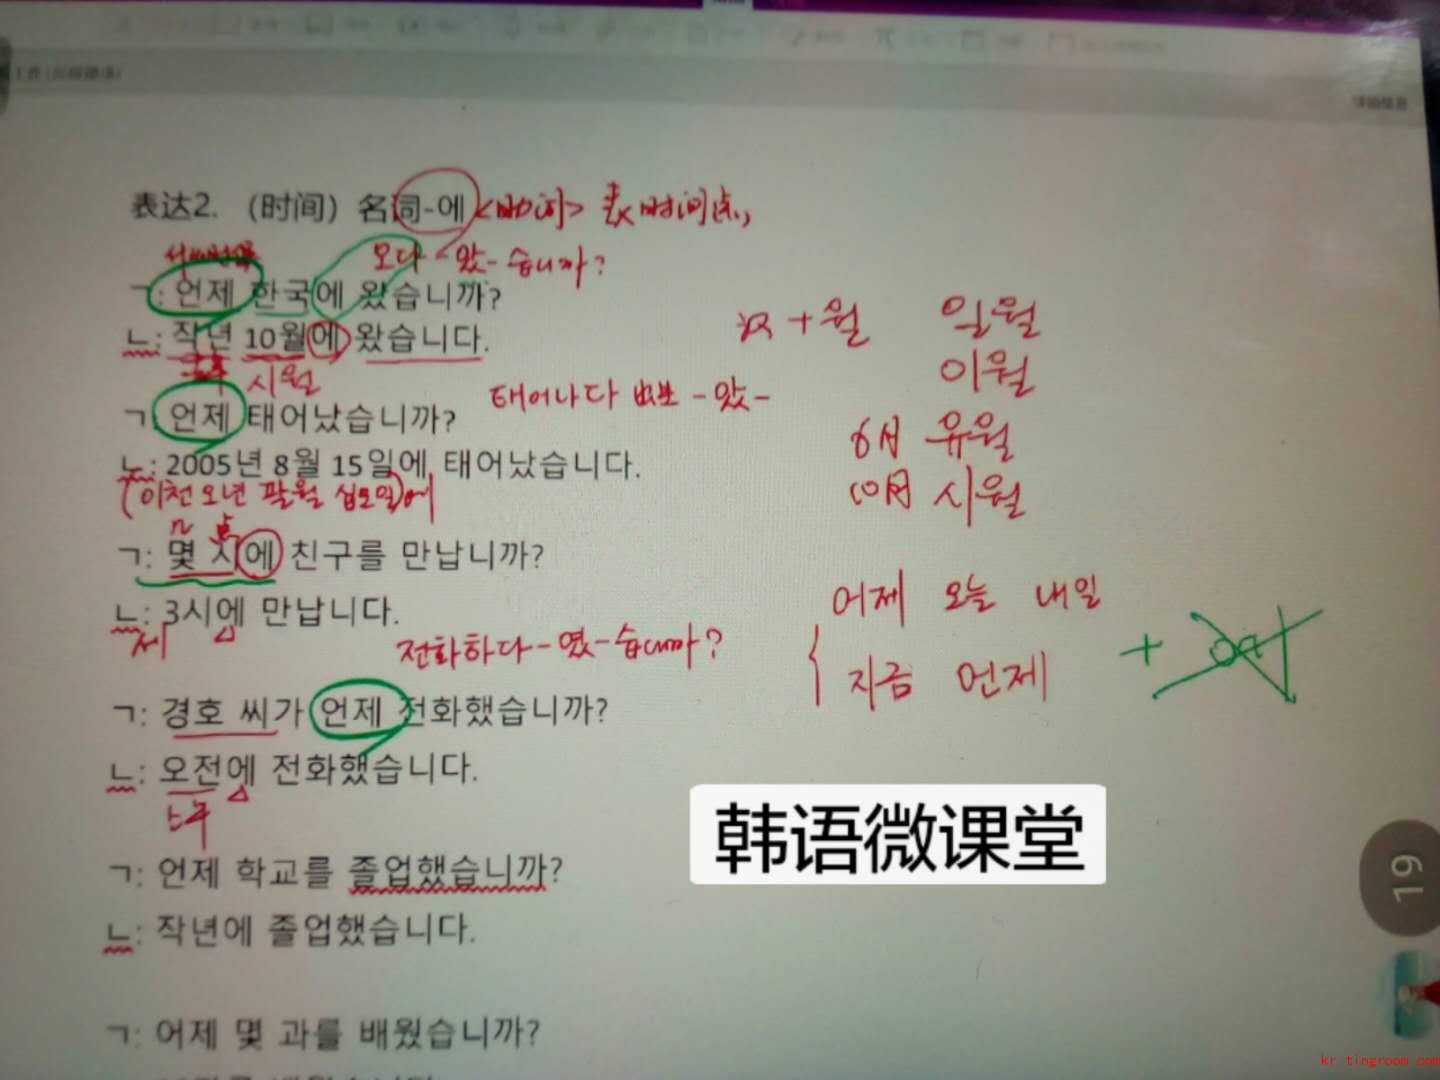 表达2. （时间）名词-에 <助词> 表时间点,
오다 - 았- 습니까?
ㄱ: 언제 한국에 왔습니까?
ㄴ: 작년 10월에 왔습니다.
시월
汉 + 월 일월
이월
6月 유월
10月 시월
태어나다 出生 - 았 -
ㄱ: 언제 태어났습니까?
ㄴ: 2005년 8월 15일에 태어났습니다.
(이천오년 팔월 십오일)에
几 点
ㄱ: 몇 시에 친구를 만납니까?
ㄴ: 3시에 만납니다.
세
어제 오늘 내일
지금 언제
+ 에
전화하다 - 였 - 습니까?
ㄱ: 경호 씨가 언제 전화했습니까?
ㄴ: 오전에 전화했습니다.
上午
ㄱ: 언제 학교를 졸업했습니까?
ㄴ: 작년에 졸업했습니다.
ㄱ: 어제 몇 과를 배웠습니까?
韩语微课堂
19
kr.tingroom.com